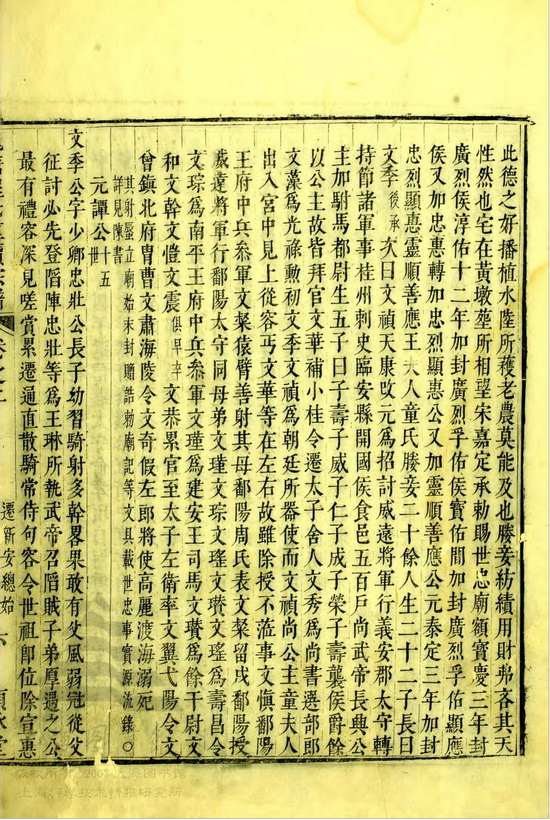 此德之好播植水陸所獲老農莫能及也媵妾紡績用財弗吝其天
性然也宅在黃墩塟所相望宋嘉定承勅賜世忠廟額寳慶三年封
廣烈侯淳佑十二年加封廣烈孚佑侯寳佑間加封廣烈孚佑顯應
侯又加忠惠轉加忠烈顯惠公又加靈順善應公元泰定三年加封
忠烈顯惠靈順善應王夫人童氏媵妾二十餘人生二十二子長曰
文季後承次曰文禎天康攺元爲招討威遠將軍行義安郡太守轉
持節諸軍事桂州刺史臨安縣開國侯食邑五百戶尚武帝長興公
主加駙馬都尉生五子曰子壽子威子仁子成子榮子壽襲侯爵餘
以公主故皆拜官文華補小桂令遷太子舍人文秀爲尚書選部郎
文藻爲光祿勲初文季文禎爲朝廷所器使而文禎尚公主童夫人
出入宮中見上從容丐文華等在左右故雖除授不蒞事文慎鄱陽
王府中兵叅軍文粲猿臂善射其母鄱陽周氏表文粲留戍鄱陽授
威遠將軍行鄱陽太守同母弟文瑾文琮文瑤文瓚文瑤爲壽昌令
文琮爲南平王府中兵叅軍文瑾爲建安王司馬文瓚爲餘干尉文
和文幹文愷文震俱早卒文恭累官至太子左衛率文翼弋陽令文
曾鎭北府冑曹文肅海陵令文奇假左郎將使高麗渡海溺死
其射蜃立廟始末封贈誥勅廟記等文具載世忠事實源流錄○
詳見陳書
元譚公十五世
文季公字少卿忠壯公長子幼習騎射多幹畧果敢有父風弱冠從父
征討必先登䧟陣忠壯等爲王琳所執武帝召䧟賊子弟厚遇之公
最有禮容深見嗟賞累遷通直散騎常侍句容令世祖卽位除宣惠
遷新安總始
六